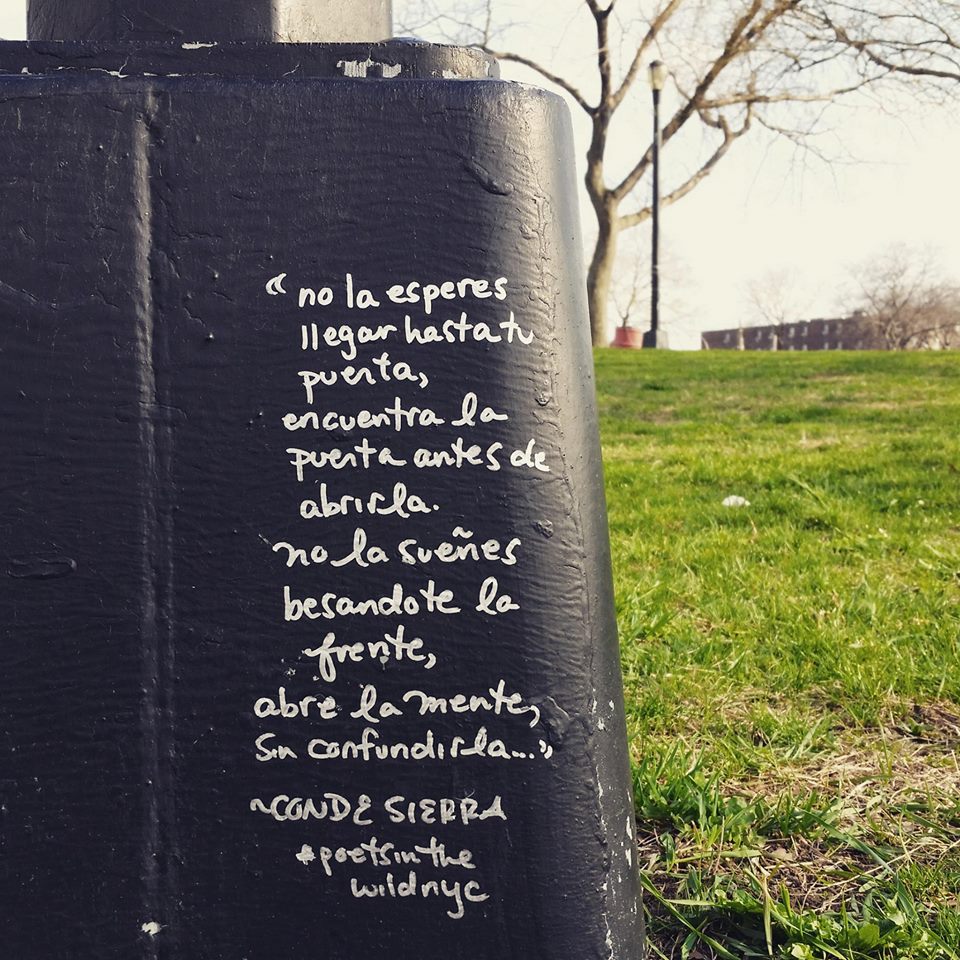 “no la esperes
llegar hasta tu
puerta,
encuentra la
puerta antes de
abrirla.
no la sueñes
besandote la
frente,
abre la mente,
sin confundirla...”
~CONDE SIERRA
#poetsinthe
wildnyc